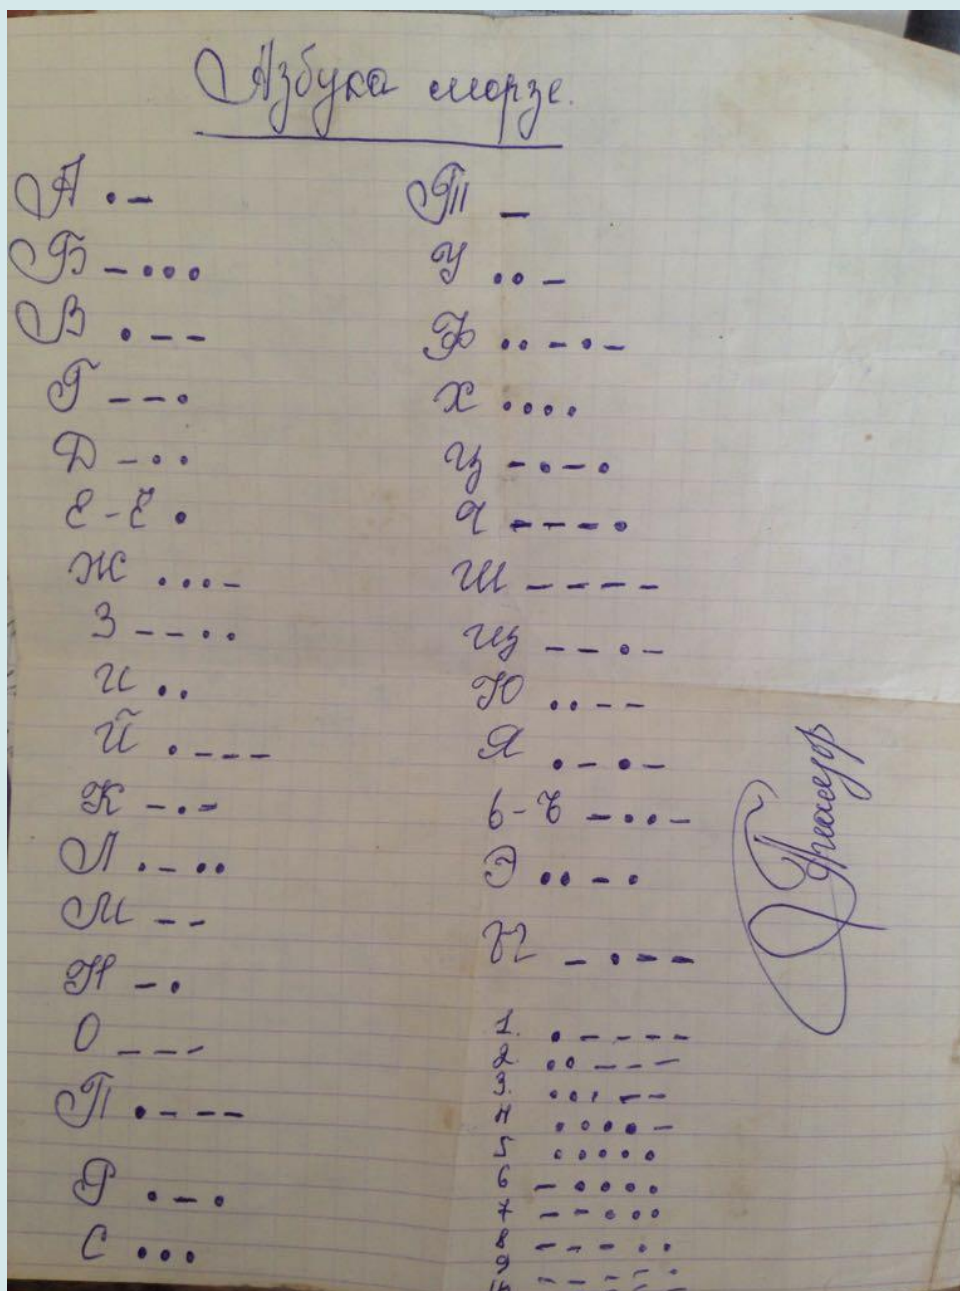 Азбука морзе.
А • –
Б – • • •
В • – –
Г – – •
Д – • •
Е - Ё •
Ж • • • –
З – – • •
И • •
Й • – – –
К – • –
Л • – • •
М – –
Н – •
О – – –
П • – – –
Р • – •
С • • •
Т –
У • • –
Ф • • – • –
Х • • • •
Ц – • – •
Ч – – – – •
Ш – – – –
Щ – – • –
Ю • • – –
Я • – • –
Ь - Ъ – • • –
Э • • – •
Ы – • – –
1. • – – – –
2. • • – – –
3. • • • – –
4 • • • • –
5 • • • • •
6 – • • • •
7 – – • • •
8 – – – • •
9 – – – – •